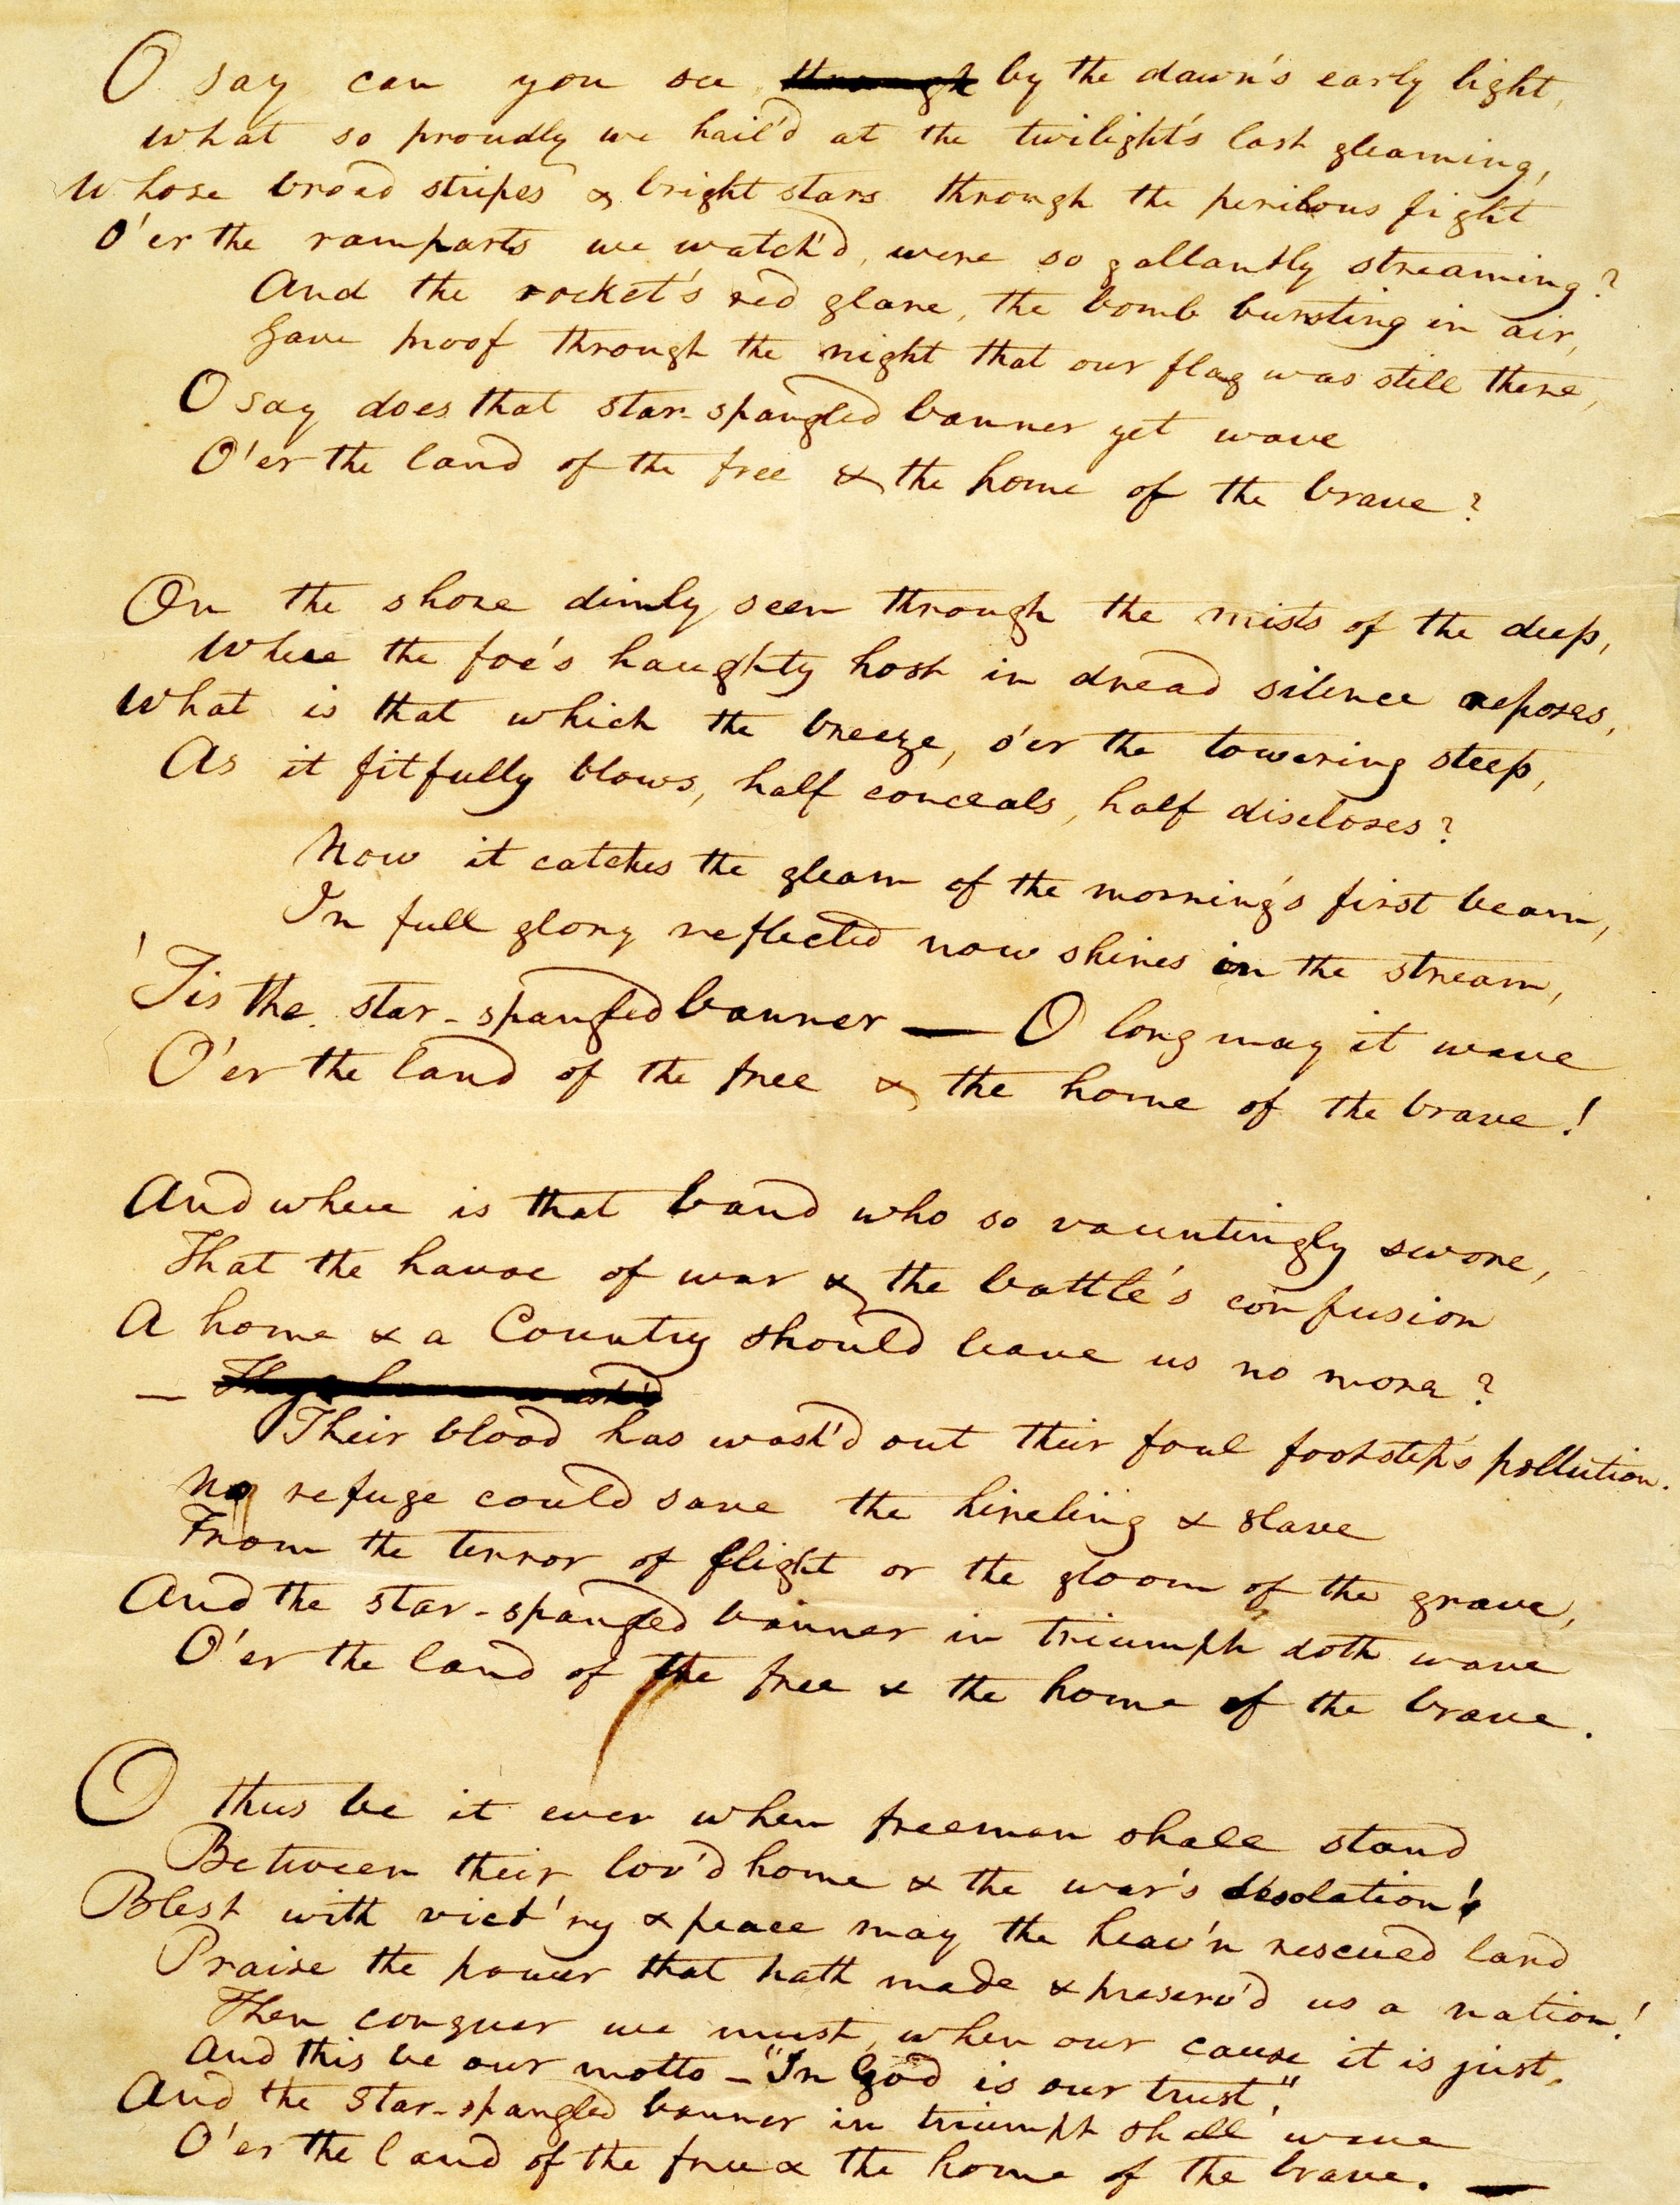 O say can you see ~~through~~ by the dawn's early light,
What so proudly we hail'd at the twilight's last gleaming,
Whose broad stripes & bright stars through the perilous fight
O'er the ramparts we watch'd, were so gallantly streaming?
And the rocket's red glare, the bomb bursting in air,
Gave proof through the night that our flag was still there,
O say does that star-spangled banner yet wave
O'er the land of the free & the home of the brave?
On the shore dimly seen through the mists of the deep,
Where the foe's haughty host in dread silence reposes,
What is that which the breeze, o'er the towering steep,
As it fitfully blows, half conceals, half discloses?
Now it catches the gleam of the morning's first beam,
In full glory reflected now shines in the stream,
'Tis the star-spangled banner — O long may it wave
O'er the land of the free & the home of the brave!
And where is that band who so vauntingly swore,
That the havoc of war & the battle's confusion
A home & a Country should leave us no more?
—
Their blood has wash'd out their foul footstep's pollution.
No refuge could save the hireling & slave
From the terror of flight or the gloom of the grave,
And the star-spangled banner in triumph doth wave
O'er the land of the free & the home of the brave.
O thus be it ever when freemen shall stand
Between their lov'd home & the war's desolation!
Blest with vict'ry & peace may the heav'n rescued land
Praise the power that hath made & preserv'd us a nation!
Then conquer we must, when our cause it is just,
And this be our motto — "In God is our trust,"
And the star-spangled banner in triumph shall wave
O'er the land of the free & the home of the brave. —